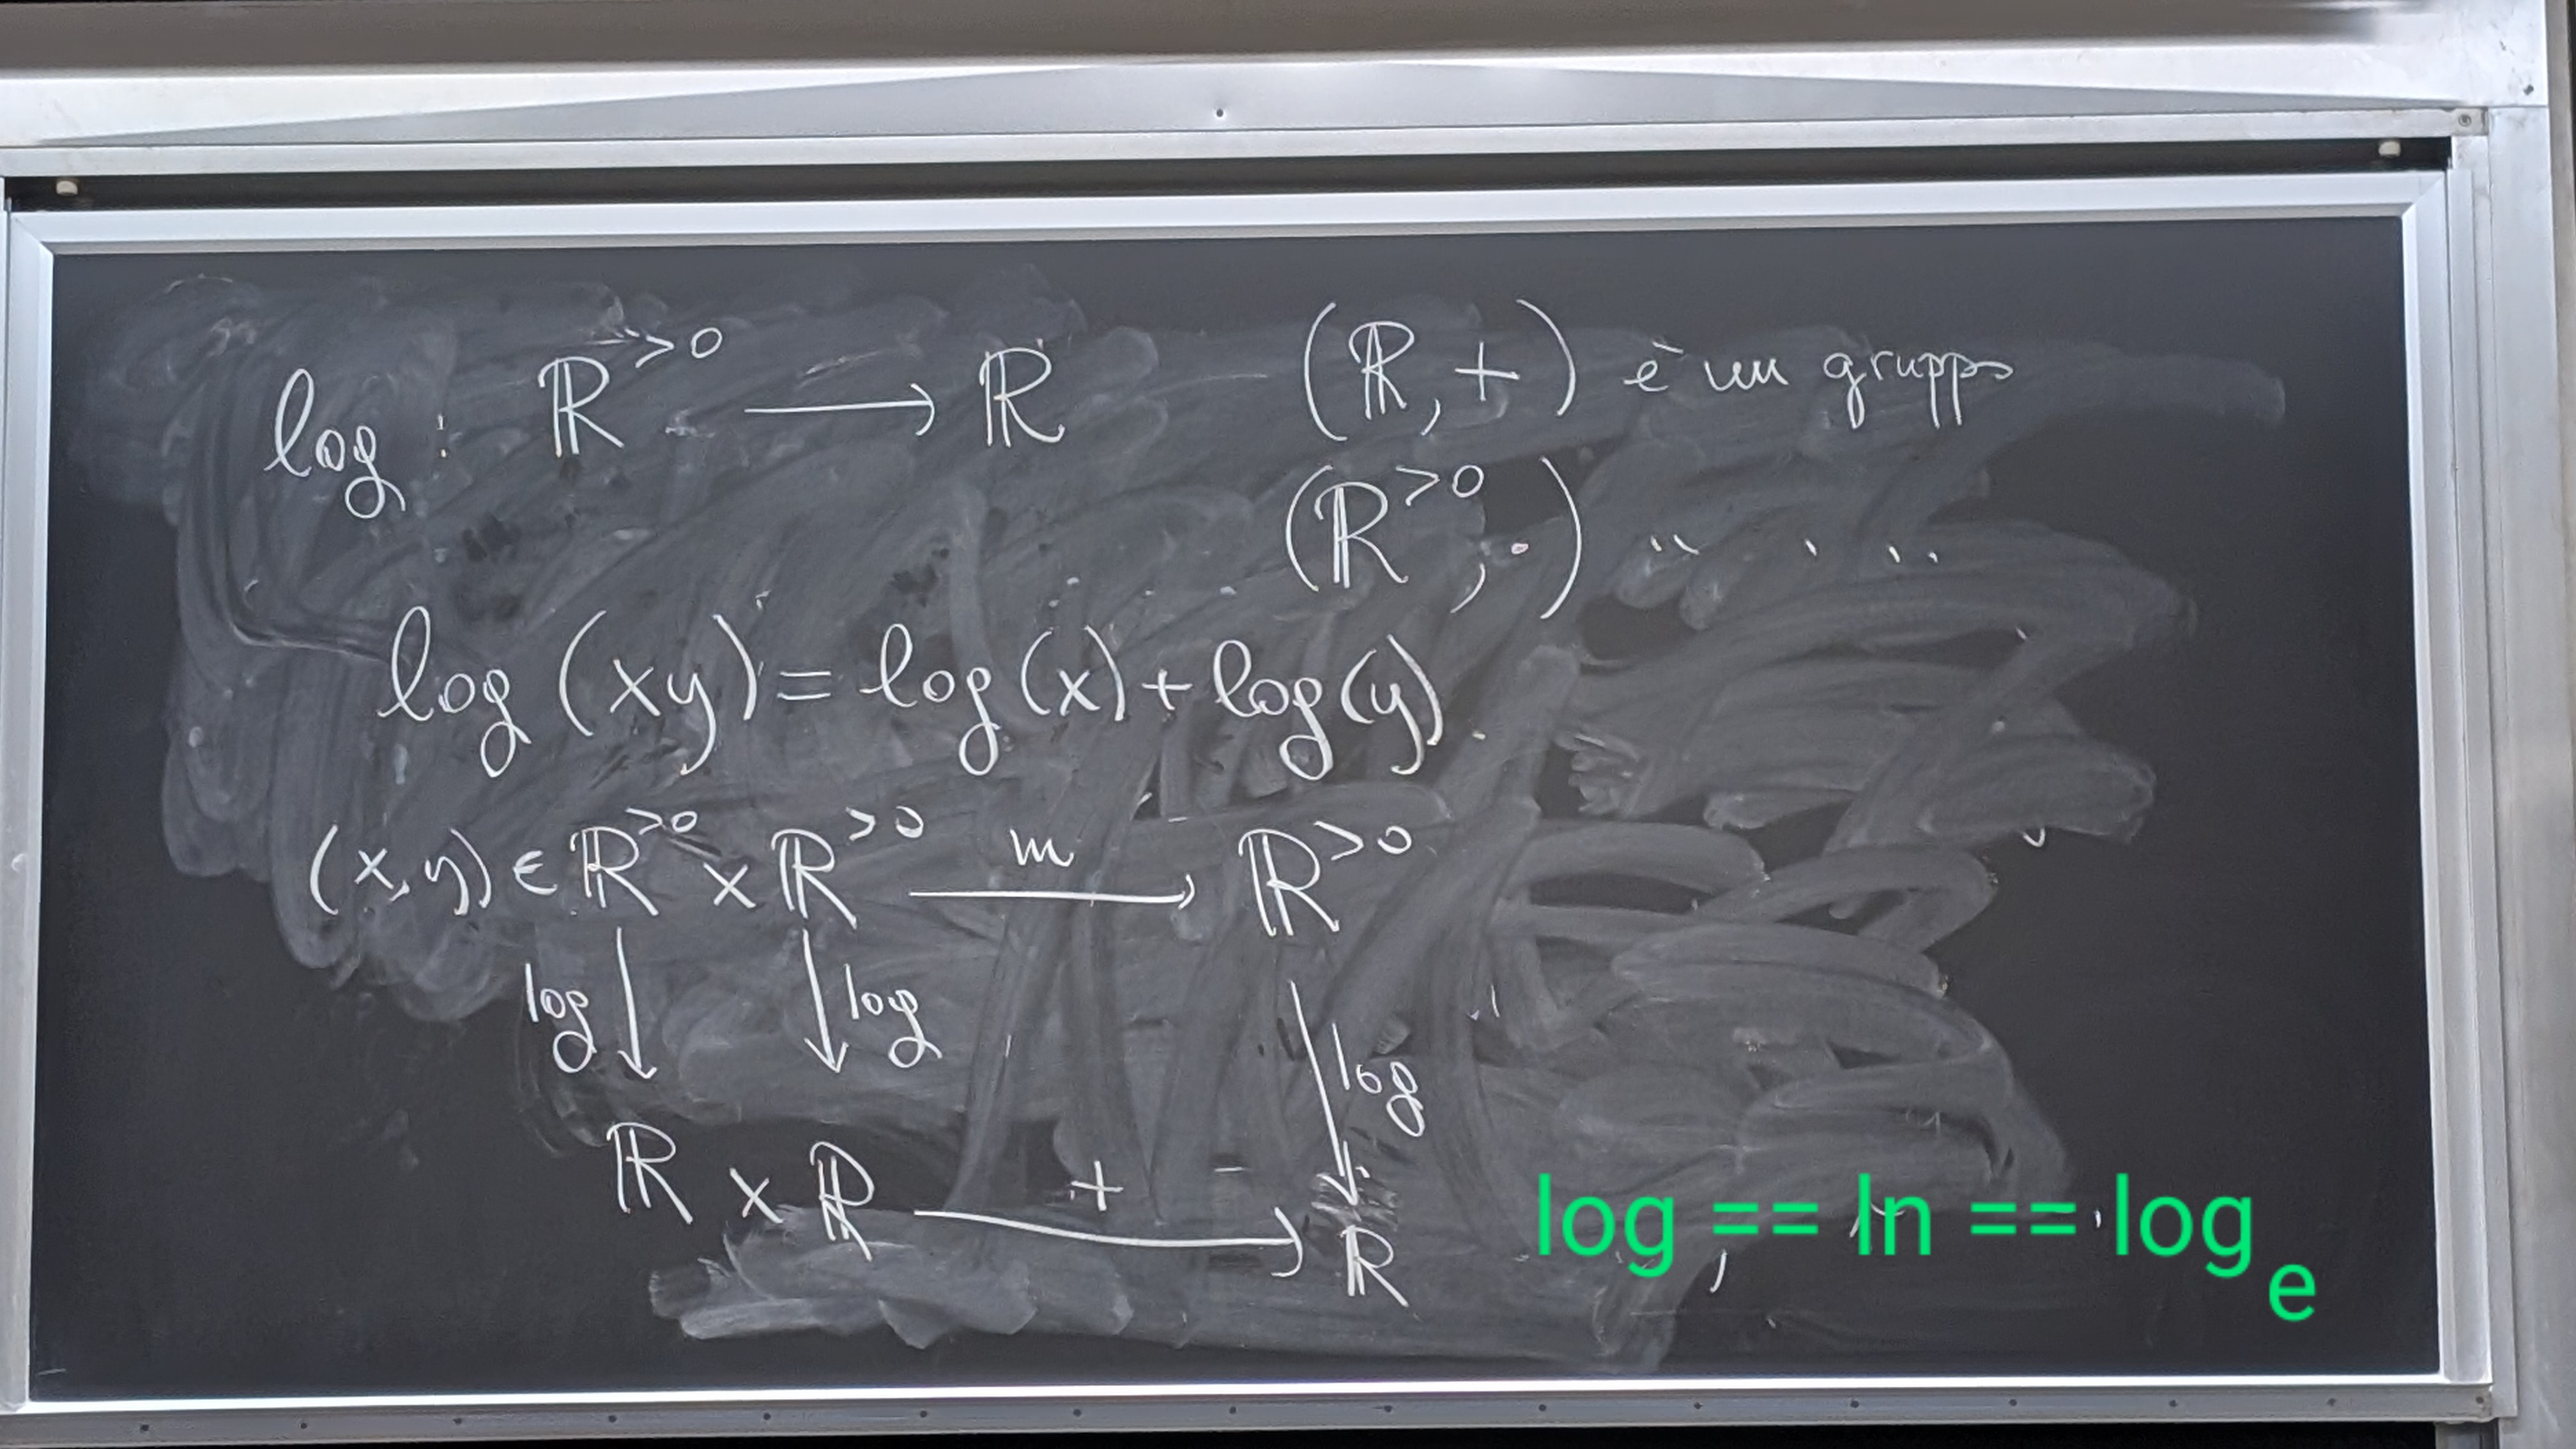 log : ℝ^{>0} ⟶ ℝ (ℝ, +) è un gruppo
(ℝ^{>0}, ·) " " "
log (xy) = log(x) + log(y)
(x, y) ∈ ℝ^{>0} × ℝ^{>0} ⟶ ℝ^{>0}
m
log ↓ ↓ log ↓ log
ℝ × ℝ ⟶ ℝ
+
log == ln == log_e